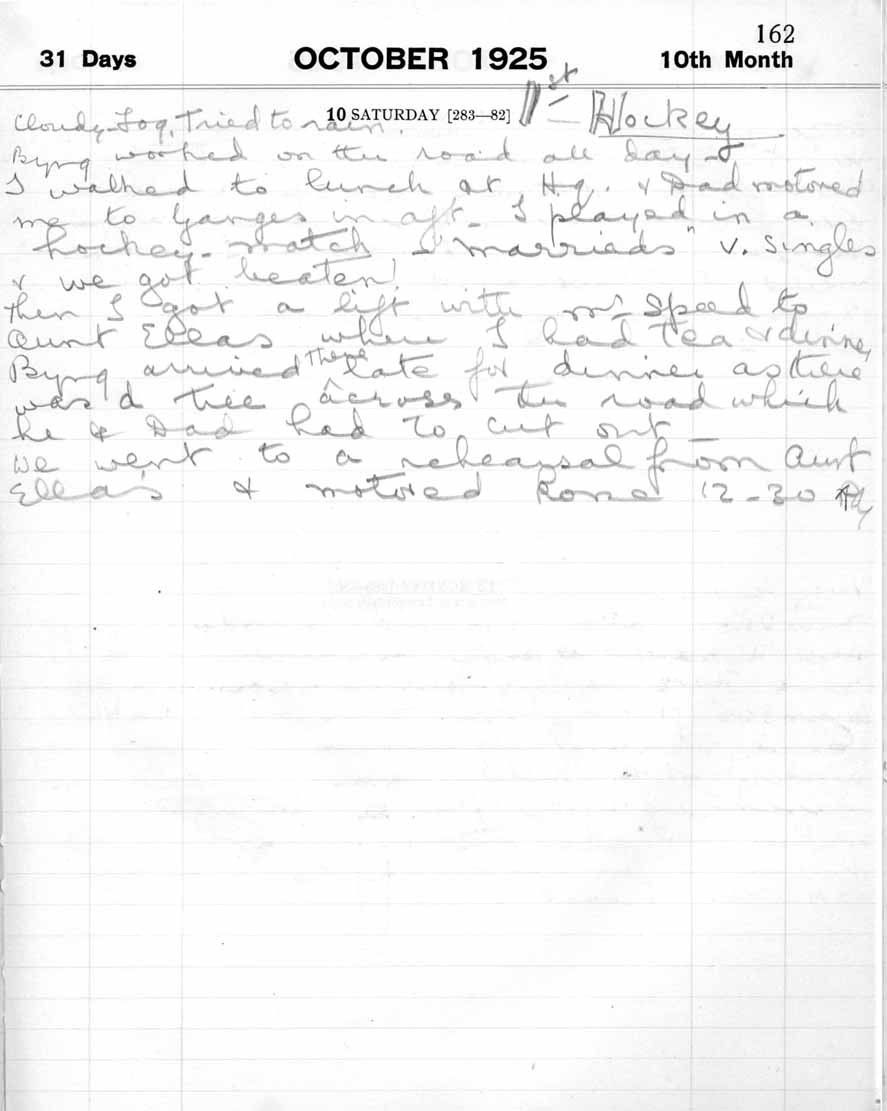 162
31 Days OCTOBER 1925 10th Month
10 SATURDAY [283—82] 1st = Hockey
Cloudy-Fog, Tried to rain.
Byng worked on the road all day - &
I walked to lunch at Hq. & Dad motored
me to Ganges in aft - I played in a
hockey - match - "marrieds" v. Singles
& we got beaten!
Then I got a lift with Mrs Speed to
Aunt Ellas where I had tea & dinner,
Byng arrived there late for dinner as there
was a tree across the road which
he & Dad had to cut out -
We went to a rehearsal from Aunt
Ella's & motored home 12-30